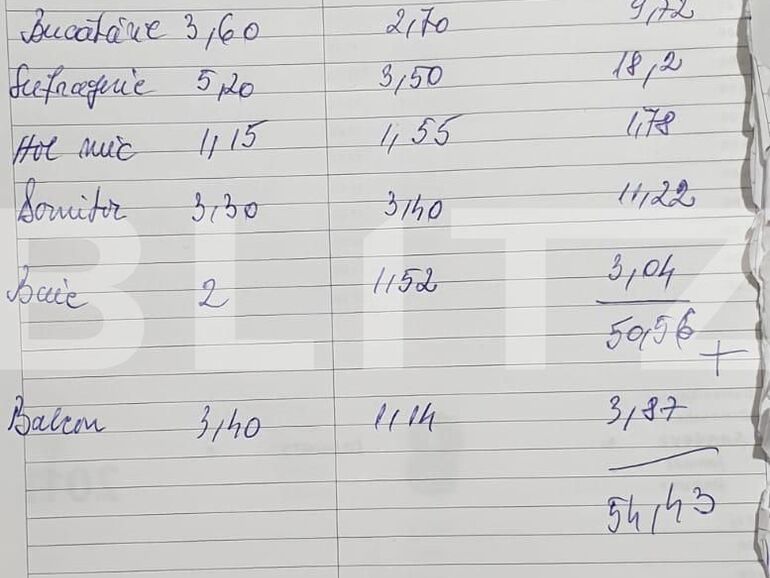 Bucatărie 3,60 2,70 9,72
Sufragerie 5,20 3,50 18,2
Hol mic 1,15 1,55 1,78
Dormitor 3,30 3,40 11,22
Baie 2 1,52 3,04
50,56
+
Balcon 3,40 1,14 3,87
54,43
BLITZ